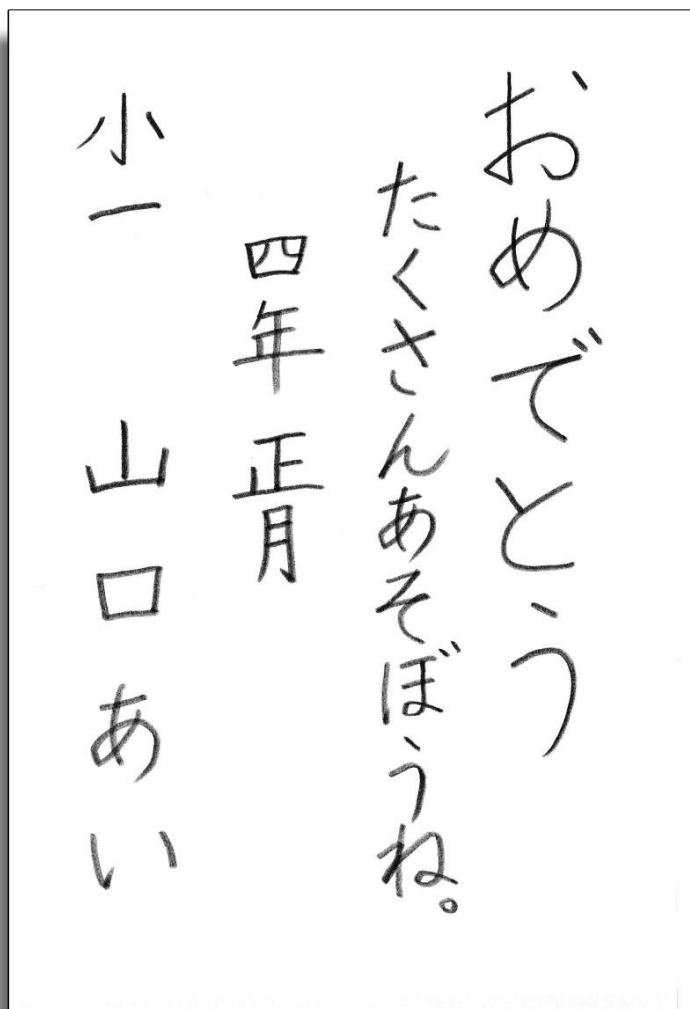 おめでとう
たくさんあそぼうね。
四年 正月
小一 山口あい